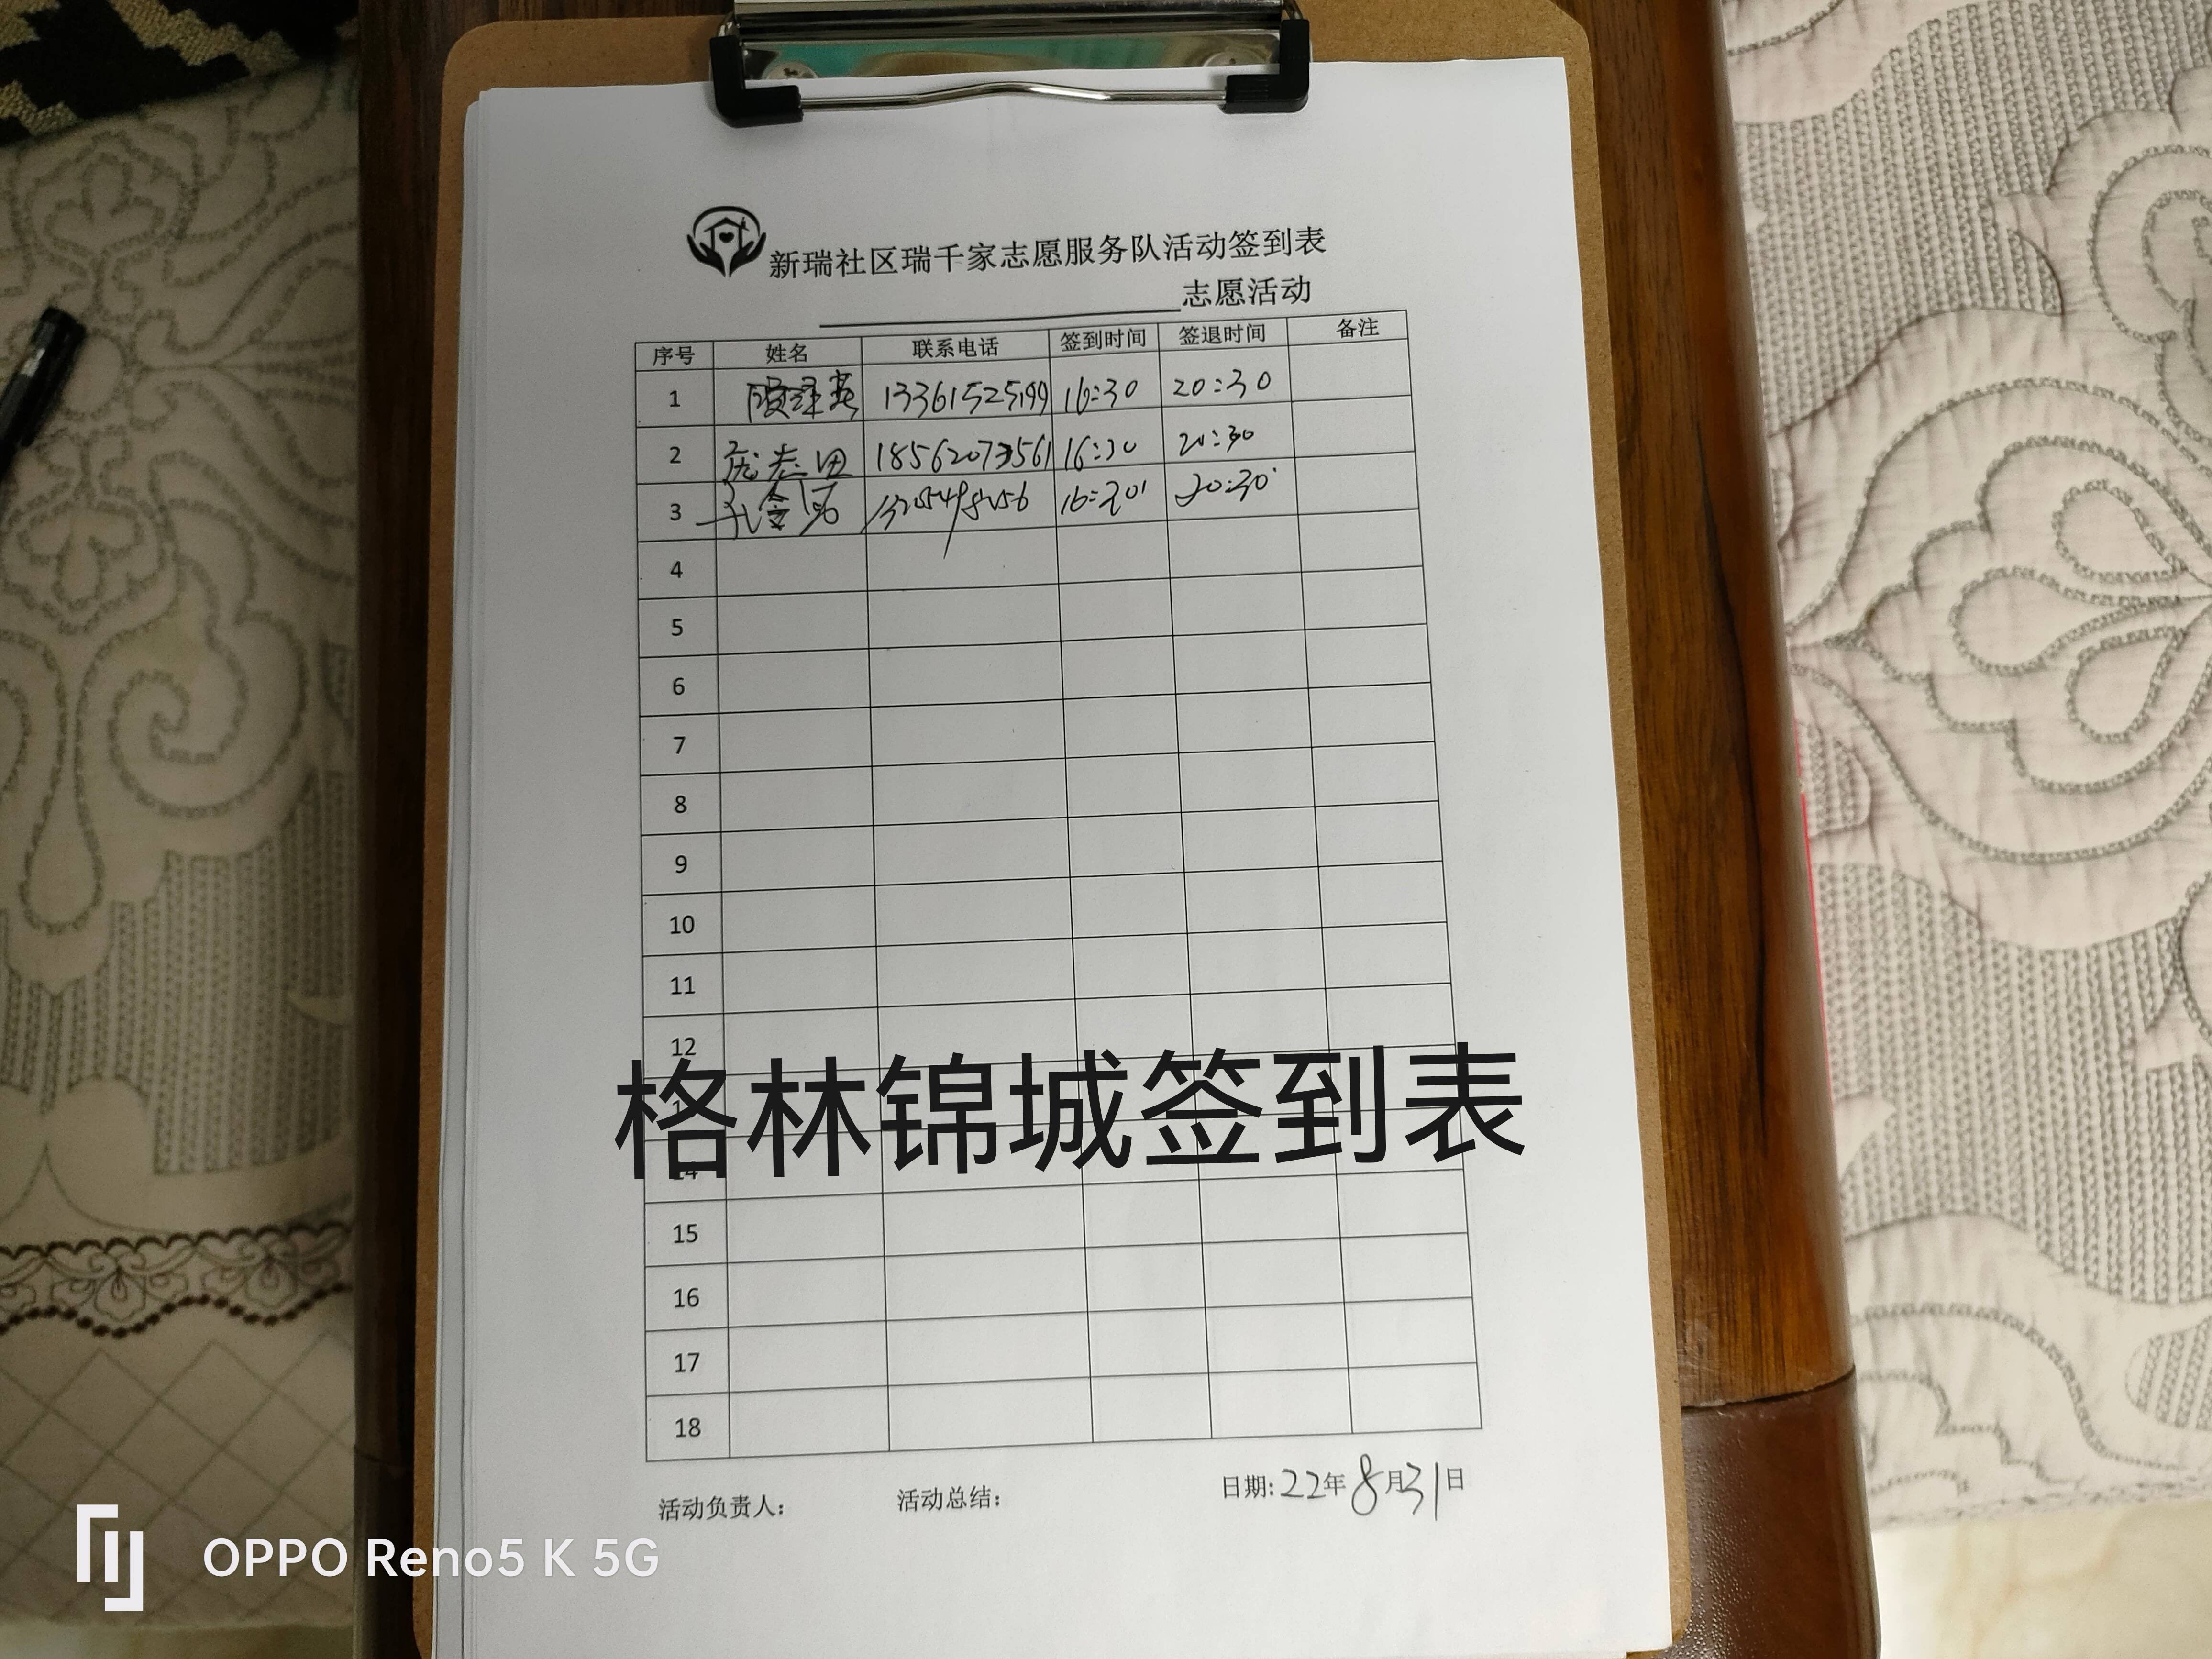 新瑞社区瑞千家志愿服务队活动签到表
志愿活动
序号 姓名 联系电话 签到时间 签退时间 备注
1 13361525199 16:30 20:30
2 18562073561 16:30 20:30
3 16:30 20:30
4
5
6
7
8
9
10
11
12
格林锦城签到表
14
15
16
17
18
活动负责人: 活动总结: 日期:22年8月31日
OPPO Reno5 K 5G